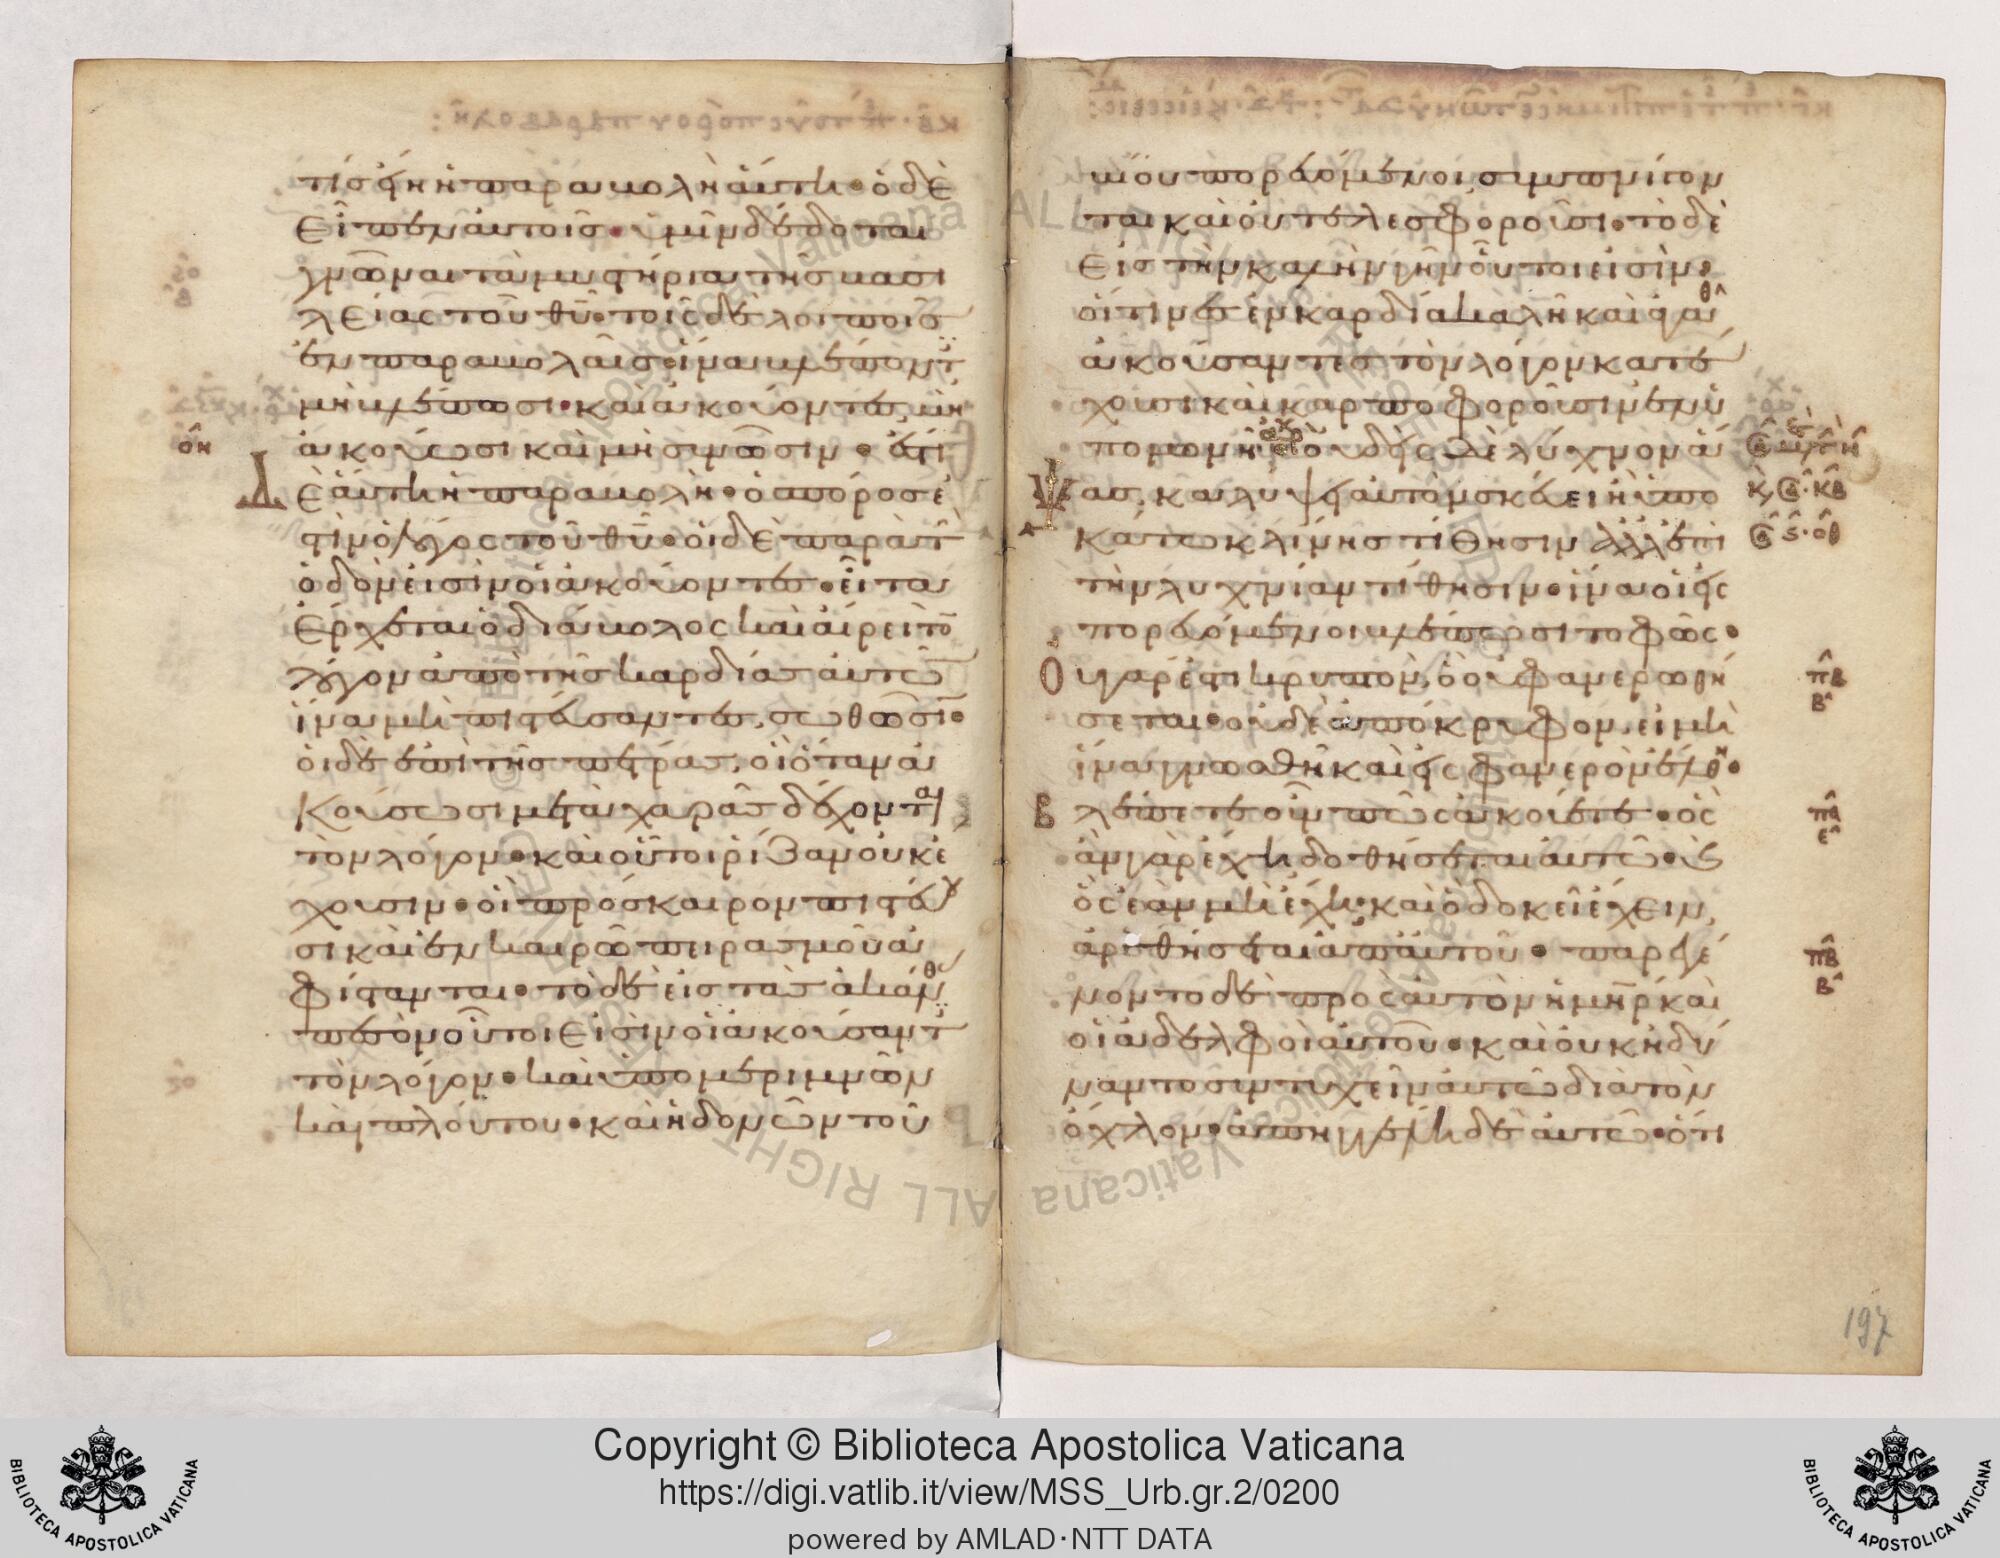 τίς ἐστιν ἡ παραβολὴ αὕτη· ὁ δὲ
εἶπεν αὐτοῖς· ὑμῖν δέδοται
γνῶναι τὰ μυστήρια τῆς βασι
λείας τοῦ θ̅υ̅· τοῖς δὲ λοιποῖς
ἐν παραβολαῖς· ἵνα βλέποντ
μὴ βλέπωσι· καὶ ἀκούοντες μὴ
οη
ἀκούωσι καὶ μὴ συνῶσιν· ἔστι
Δὲ αὕτη ἡ παραβολή· ὁ σπόρος ἐ
στὶν ὁ λόγος τοῦ θ̅υ̅· οἱ δὲ παρὰ τ
ὁδὸν εἰσὶν οἱ ἀκούοντες· εἶτα
ἔρχεται ὁ διάβολος καὶ αἴρει τὸ
λόγον ἀπὸ τῆς καρδίας αὐτῶ
ἵνα μὴ πιστεύσαντες σωθῶσι·
οἱ δὲ ἐπὶ τῆς πέτρας, οἳ ὅταν ἀ
κούσωσι μετὰ χαρᾶς δέχονται
τὸν λόγον· καὶ οὗτοι ρίζαν οὐκ ἔ
χουσιν· οἳ πρὸς καιρὸν πιστεύου
σι καὶ ἐν καιρῶ πειρασμοῦ ἀ
φίστανται· τὸ δὲ εἰς τὰς ἀκάνθ
πεσὸν οὗτοι εἰσὶν οἱ ἀκούσαντ
τὸν λόγον· καὶ ὑπὸ μεριμνῶν
καὶ πλούτου· καὶ ἡδονῶν τοῦ
βίου πορευόμενοι συμπνίγον
ται καὶ οὐ τελεσφοροῦσι· τὸ δὲ
εἰς τὴν καλὴν γῆν οὗτοι εἰσὶν·
οἵτινες ἐν καρδία καλῆ καὶ ἀγαθ
ἀκούσαντες τὸν λόγον κατέ
χουσι καὶ καρποφοροῦσιν ἐν ὑ
πομονῆ οὐδεὶς δὲ λύχνον ἅ
Ψας, καλύπτει αὐτὸν σκεύει ἢ ὑπο
κάτω κλίνης τίθησιν ἀλλ' ἐπὶ
οθ
τὴν λυχνίαν τίθησιν· ἵνα οἱ εἰς
πορευόμενοι βλέπωσι τὸ φῶς·
Οὐ γάρ ἐστι κρυπτὸν, ὃ οὐ φανερωθή
π
β
σεται· οὐδὲ ἀπόκρυφον, εἰ μὴ
ἵνα γνωσθῆ καὶ εἰς φανερὸν ἔλθη·
Βλέπετε οὖν πῶς ἀκούετε· ὃς
πα
ε
ἂν γὰρ ἔχη δοθήσεται αὐτῶ· καὶ
ὃς ἐὰν μὴ ἔχη· καὶ ὃ δοκεῖ ἔχειν,
ἀρθήσεται ἀπ' αὐτοῦ· παρεγέ
πβ
β
νοντο δὲ πρὸς αὐτὸν ἡ μ̅η̅ρ̅ καὶ
οἱ ἀδελφοὶ αὐτοῦ· καὶ οὐκ ἠδύ
ναντο συντυχεῖν αὐτῶ διὰ τὸν
ὄχλον· ἀπηγγέλη δὲ αὐτῶ· ὅτι
197
Copyright © Biblioteca Apostolica Vaticana
https://digi.vatlib.it/view/MSS_Urb.gr.2/0200
powered by AMLAD·NTT DATA
BIBLIOTECA APOSTOLICA VATICANA
BIBLIOTECA APOSTOLICA VATICANA